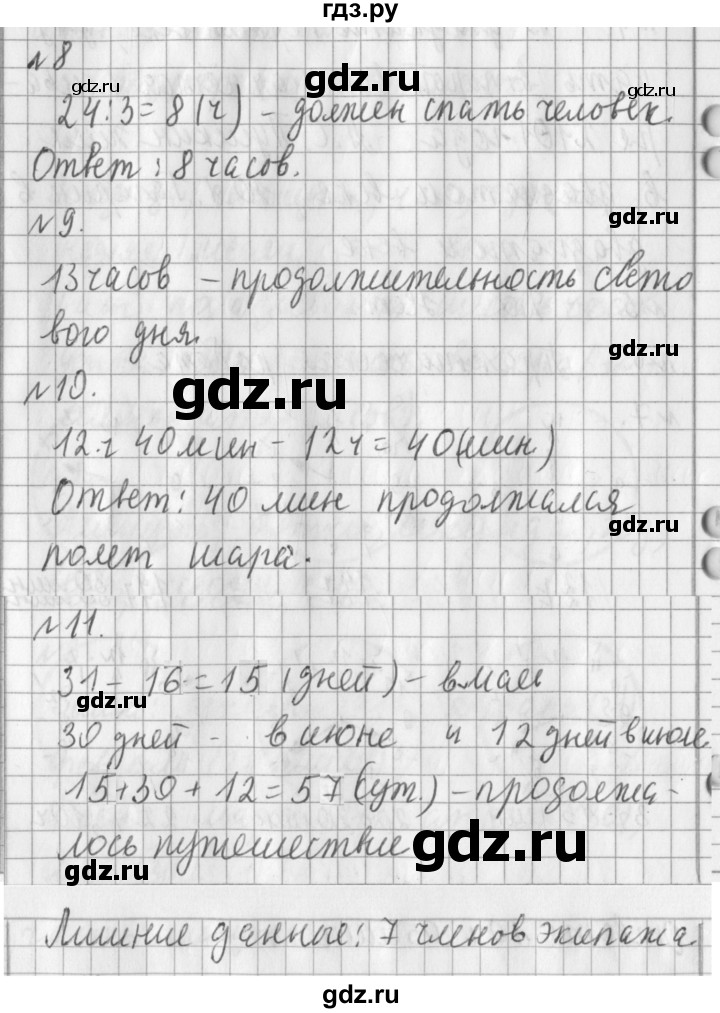 гдз.ру
№8
gdz.ru
gdz.ru
24:3=8(ч) - должен спать человек.
Ответ: 8 часов.
gdz.ru
№9.
13 часов - продолжительность свето
вого дня.
gdz.ru
№10.
gdz.ru
12ч 40мин - 12ч = 40(мин)
Ответ: 40 мин продолжался
gdz.ru
полет шара.
№11.
31 - 16 = 15 (дней) - в мае
gdz.ru
gdz.ru
30 дней - в июне и 12 дней в июле.
15+30+12=57(сут.) - продолжа-
лось путешествие
gdz.ru
gdz.ru
Лишние данные: 7 членов экипажа.
gdz.ru